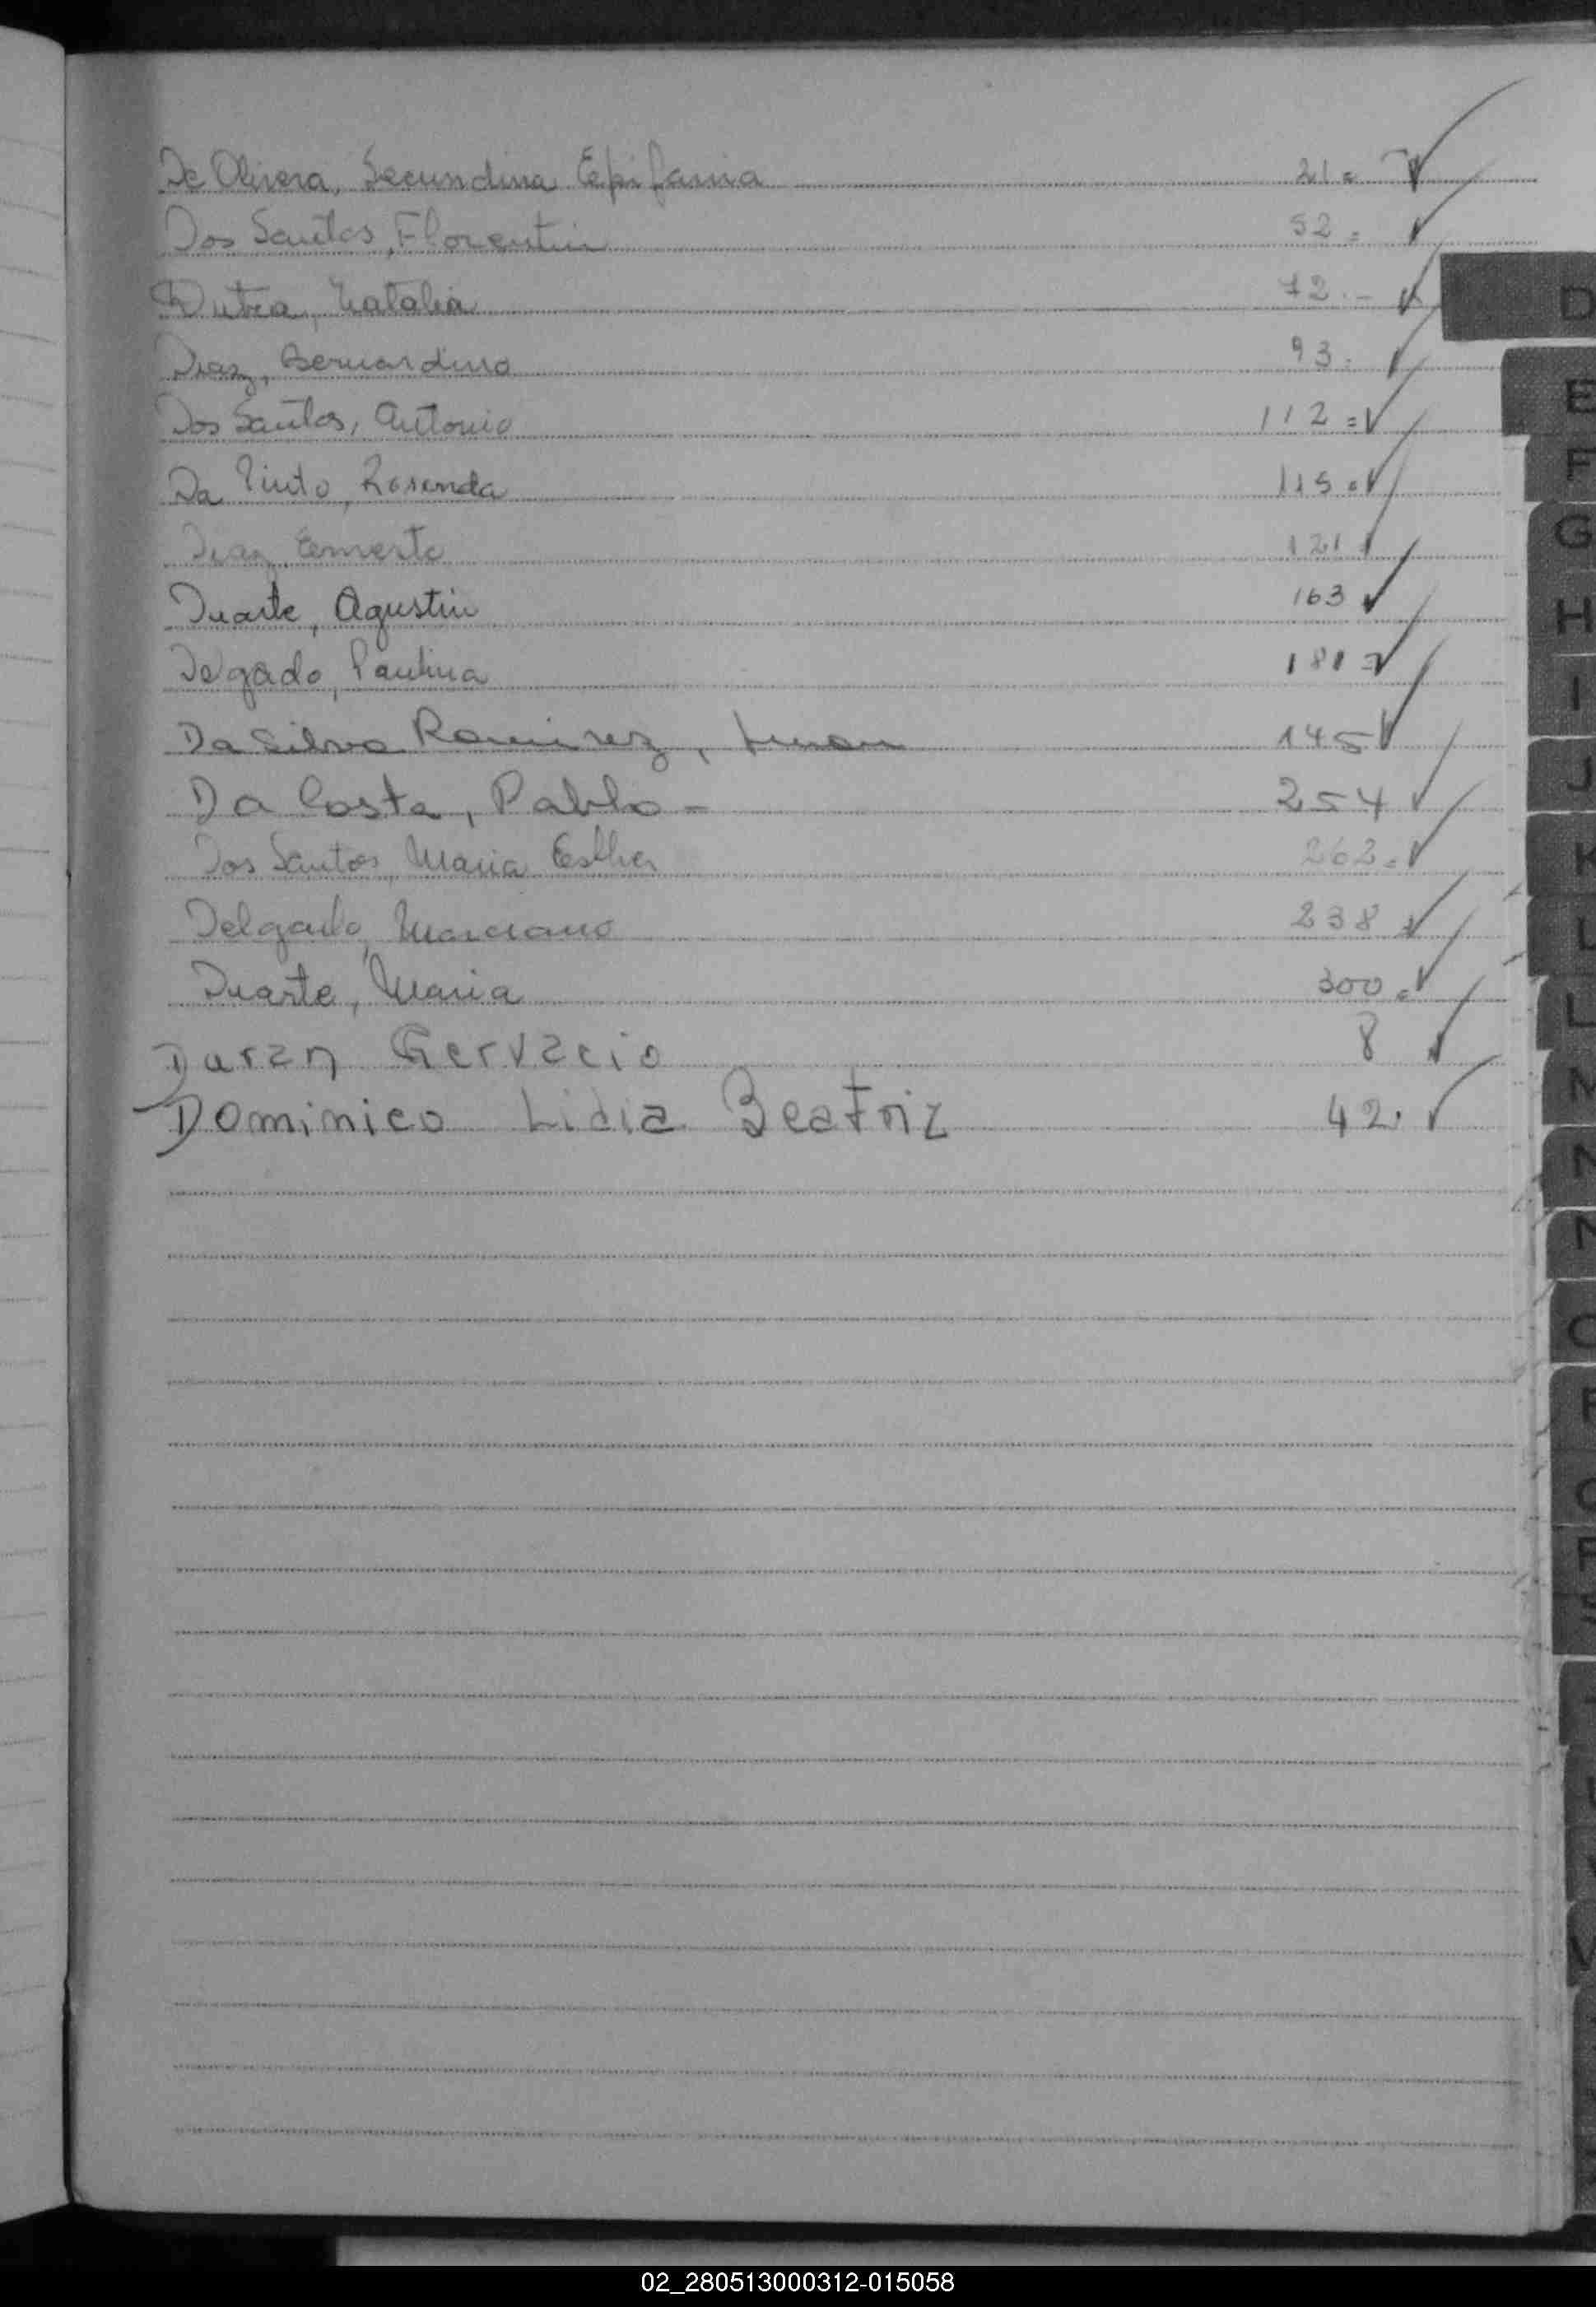 De Olivera, Secundina Epifania 21=
Dos Santos, Florentin 52=
Dutra, Natalia 72.-
Diaz, Bernardino 93.
Dos Santos, Antonio 112=
Da Pinto, Rosenda 115=
Diaz, Ernesto 121
Duarte, Agustin 163
Delgado, Paulina 181=
Da Silva Ramirez, 145
Da Costa, Pablo- 254
Dos Santos, Maria Esther 262=
Delgado, Marciano 238
Duarte, Maria 300=
Duran Gervacio 8
Dominico Lidia Beatriz 42.
D
E
F
G
H
I
J
K
L
L
M
N
N
02_280513000312-015058